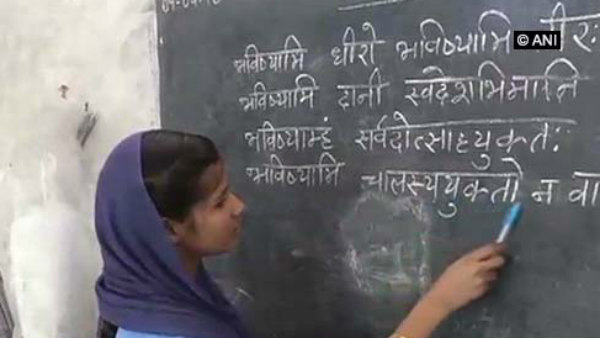 भविष्यामि धीरो भविष्यामि वीरः
भविष्यामि दानी स्वदेशाभिमानि
भविष्याम्हं सर्वदोत्साहयुक्तः
भविष्यामि चालस्ययुक्तो न वा
© ANI